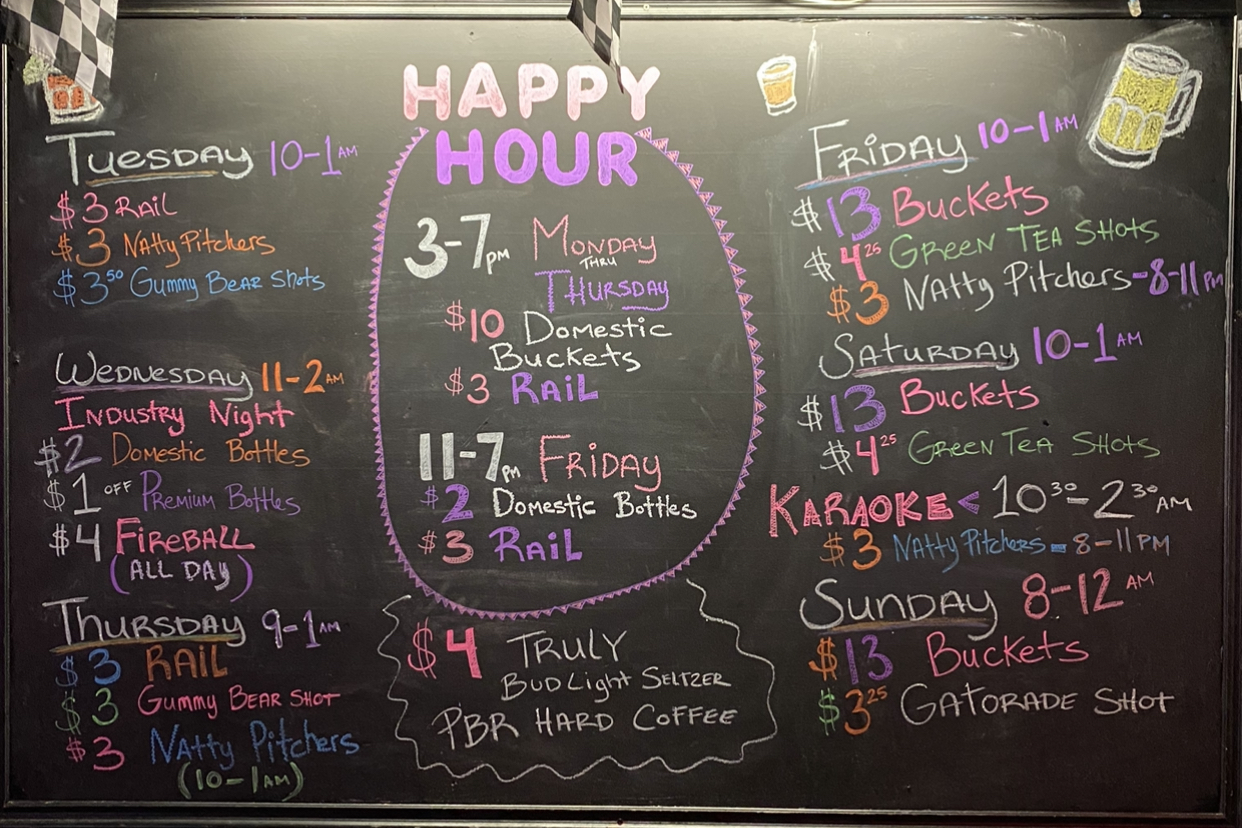 HAPPY
HOUR
TUESDAY 10-1 AM
$3 RAIL
$3 NATTY PITCHERS
$3⁵⁰ GUMMY BEAR SHOTS
WEDNESDAY 11-2 AM
INDUSTRY NIGHT
$2 DOMESTIC BOTTLES
$1 OFF PREMIUM BOTTLES
$4 FIREBALL
(ALL DAY)
THURSDAY 9-1 AM
$3 RAIL
$3 GUMMY BEAR SHOT
$3 NATTY PITCHERS
(10-1 AM)
3-7 PM MONDAY
THRU
THURSDAY
$10 DOMESTIC
BUCKETS
$3 RAIL
11-7 PM FRIDAY
$2 DOMESTIC BOTTLES
$3 RAIL
$4 TRULY
BUD LIGHT SELTZER
PBR HARD COFFEE
FRIDAY 10-1 AM
$13 BUCKETS
$4²⁵ GREEN TEA SHOTS
$3 NATTY PITCHERS-8-11 PM
SATURDAY 10-1 AM
$13 BUCKETS
$4²⁵ GREEN TEA SHOTS
KARAOKE < 10³⁰-2³⁰ AM
$3 NATTY PITCHERS = 8-11 PM
SUNDAY 8-12 AM
$13 BUCKETS
$3²⁵ GATORADE SHOT